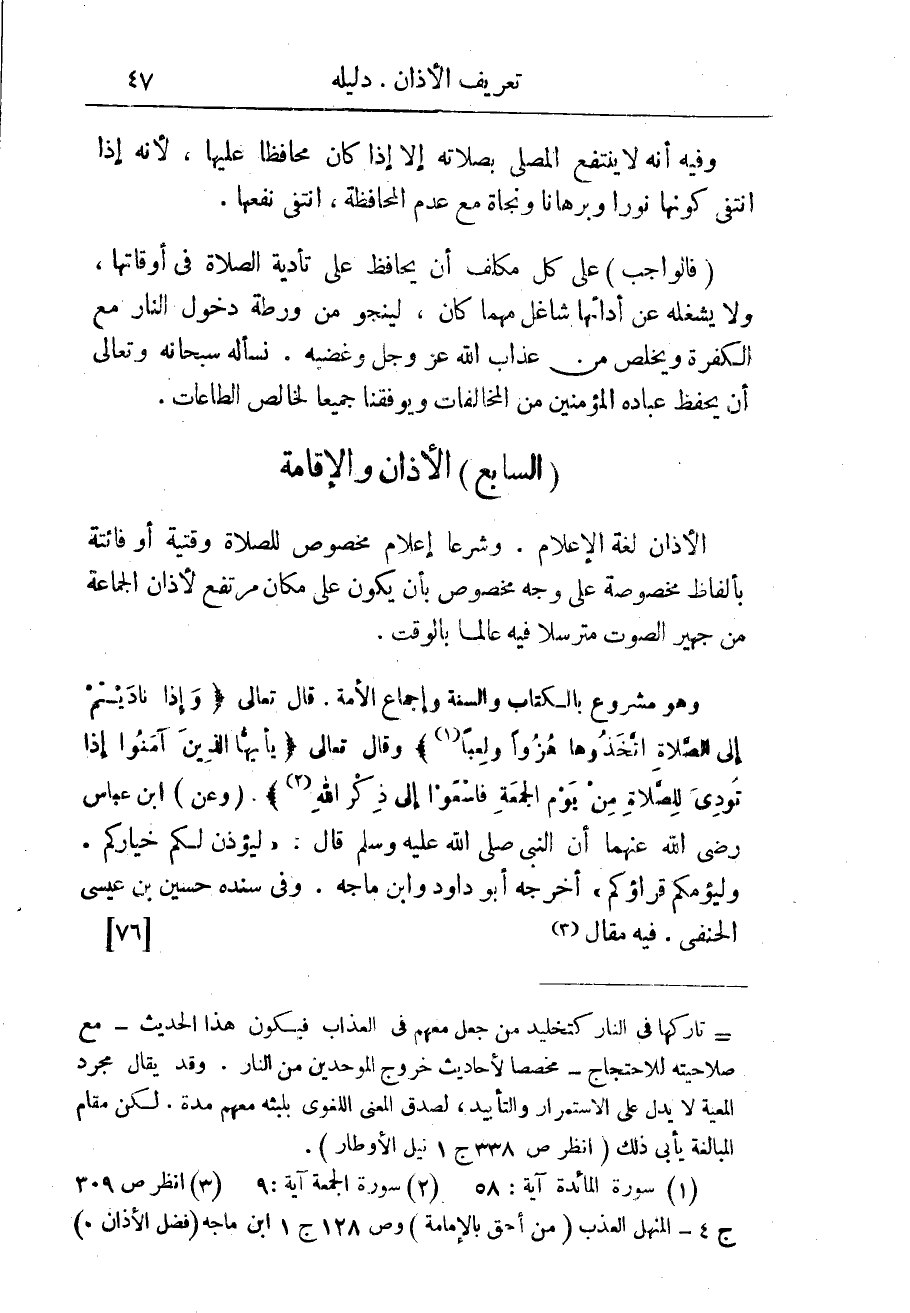 تعريف الأذان . دليله ٤٧
وفيه أنه لا ينتفع المصلى بصلاته إلا إذا كان محافظا عليها ، لأنه إذا
انتفى كونها نورا وبرهانا ونجاة مع عدم المحافظة ، انتفى نفعها .
( فالواجب ) على كل مكلف أن يحافظ على تأدية الصلاة فى أوقاتها ،
ولا يشغله عن أدائها شاغل مهما كان ، لينجو من ورطة دخول النار مع
الكفرة ويخلص من عذاب الله عز وجل وغضبه . نسأله سبحانه وتعالى
أن يحفظ عباده المؤمنين من المخالفات ويوفقنا جميعا لخالص الطاعات .
( السابع ) الأذان والإقامة
الأذان لغة الإعلام . وشرعا إعلام مخصوص للصلاة وقتية أو فائتة
بألفاظ مخصوصة على وجه مخصوص بأن يكون على مكان مرتفع لأذان الجماعة
من جهير الصوت مترسلا فيه عالما بالوقت .
وهو مشروع بالكتاب والسنة وإجماع الأمة . قال تعالى ﴿ وَإذا نادَيْتُمْ
إلى الصَّلاةِ اتَّخَذُوها هُزُواً ولَعِباً (١) ﴾ وقال تعالى ﴿ يأيهُّا الذِينَ آمَنُوا إذا
نُودِىَ لِلصَّلاةِ مِنْ يَوْمِ الجمَعَةِ فاسْعَوْا إلى ذِكْرِ اللهِ (٢) ﴾ . (وعن ) ابن عباس
رضى الله عنهما أن النبى صلى الله عليه وسلم قال : « ليؤذن لكم خياركم .
وليؤمكم قراؤكم ، أخرجه أبو داود وابن ماجه . وفى سنده حسين بن عيسى
الحنفى . فيه مقال (٣) [٧٦]
= تاركها فى النار كتخليد من جعل معهم فى العذاب فيكون هذا الحديث – مع
صلاحيته للاحتجاج – مخصصا لأحاديث خروج الموحدين من النار . وقد يقال مجرد
المعية لا يدل على الاستمرار والتأبيد ، لصدق المعنى اللغوى بلبثه معهم مدة . لكن مقام
المبالغة يأبى ذلك ( انظر ص ٣٣٨ ج ١ نيل الأوطار ) .
(١) سورة المائدة آية : ٥٨ (٢) سورة الجمعة آية : ٩ (٣) انظر ص ٣٠٩
ج ٤ – المنهل العذب ( من أحق بالإمامة ) وص ١٢٨ ج ١ ابن ماجه (فضل الأذان ٠)